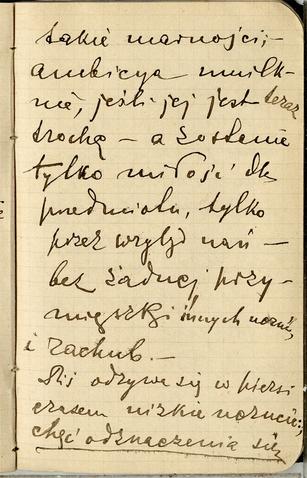 takie marności; –
ambicya umilk-
nie, jeśli jej jest teraz
trochę – a zostanie
tylko miłość dla
przedmiotu, tylko
przez wzgląd nań –
bez żadnej przy-
mieszki innych uczuć,
i rachub. –
Dziś odzywa się w piersi
czasem nizkie uczucie:,
chęć odznaczenia się,